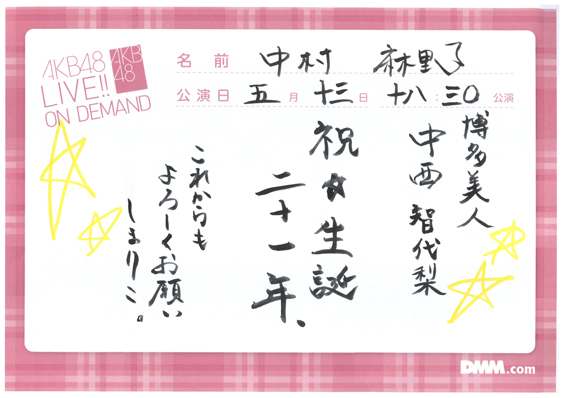 AKB48
LIVE!!
ON DEMAND
AKB
48
名前 中村 麻里子
公演日 五月 十三日 十八:三〇 公演
博多美人
中西智代梨
祝☆生誕
二十一年、
これからも
よろしくお願い
しまりこ。
DMM.com